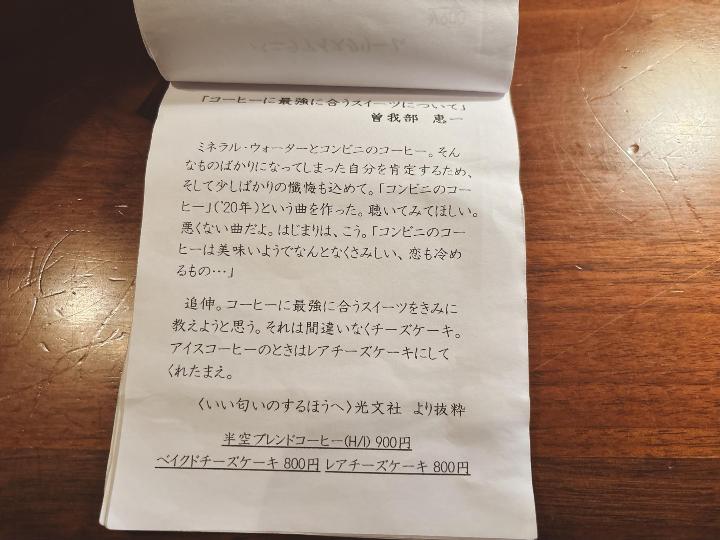 「コーヒーに最強に合うスイーツについて」
曽我部 恵一
ミネラル・ウォーターとコンビニのコーヒー。そん
なものばかりになってしまった自分を肯定するため、
そして少しばかりの懺悔も込めて。「コンビニのコー
ヒー」('20年)という曲を作った。聴いてみてほしい。
悪くない曲だよ。はじまりは、こう。「コンビニのコー
ヒーは美味いようでなんとなくさみしい、恋も冷め
るもの…」
追伸。コーヒーに最強に合うスイーツをきみに
教えようと思う。それは間違いなくチーズケーキ。
アイスコーヒーのときはレアチーズケーキにして
くれたまえ。
〈いい匂いのするほうへ〉光文社 より抜粋
半空ブレンドコーヒー(H/I) 900円
ベイクドチーズケーキ 800円 レアチーズケーキ 800円